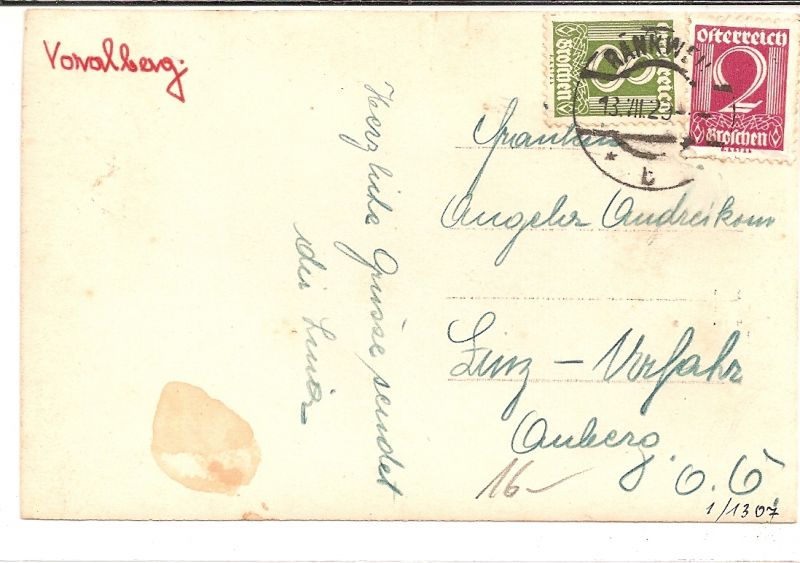 Voralberg.
Herzliche Grüsse sendet
dir Luise
8
Groschen
Österreich
2
Groschen
RANKWEIL
13.VII.25
* b
Fräulein
Angela Andreikom
Linz – Urfahr
Auberg
O.Ö
16–
1/1307